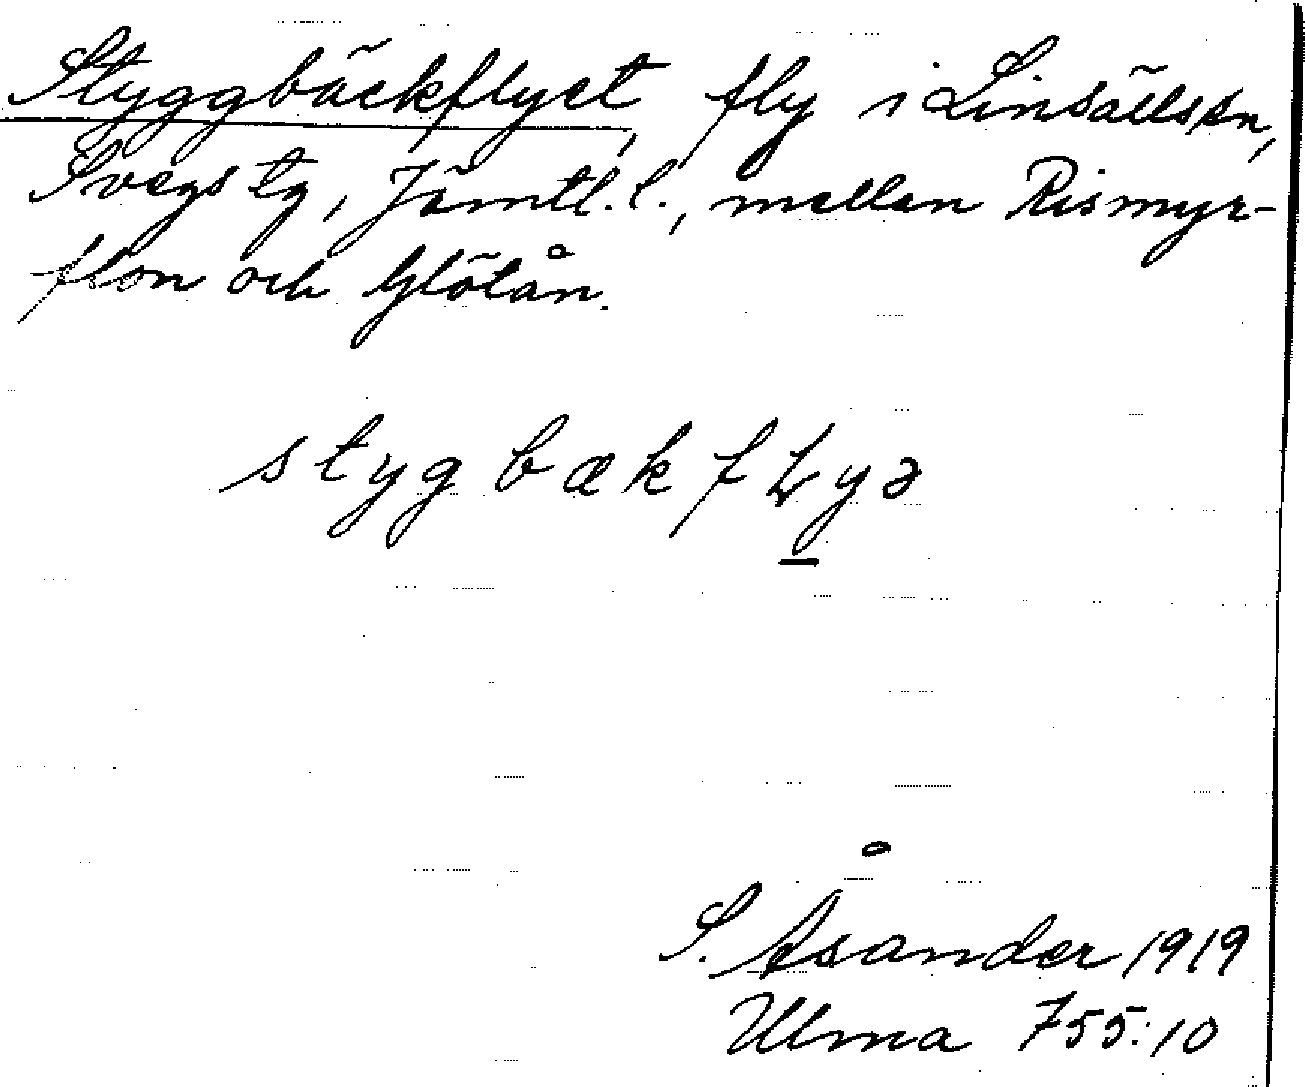 Styggbäckflyet, fly i Linsällssn,
Svegs tg, Jämtl. l., mellan Rismyr-
flon och Glötån.
stygbækfⱡyə
S. Åsander 1919
Ulma 755:10